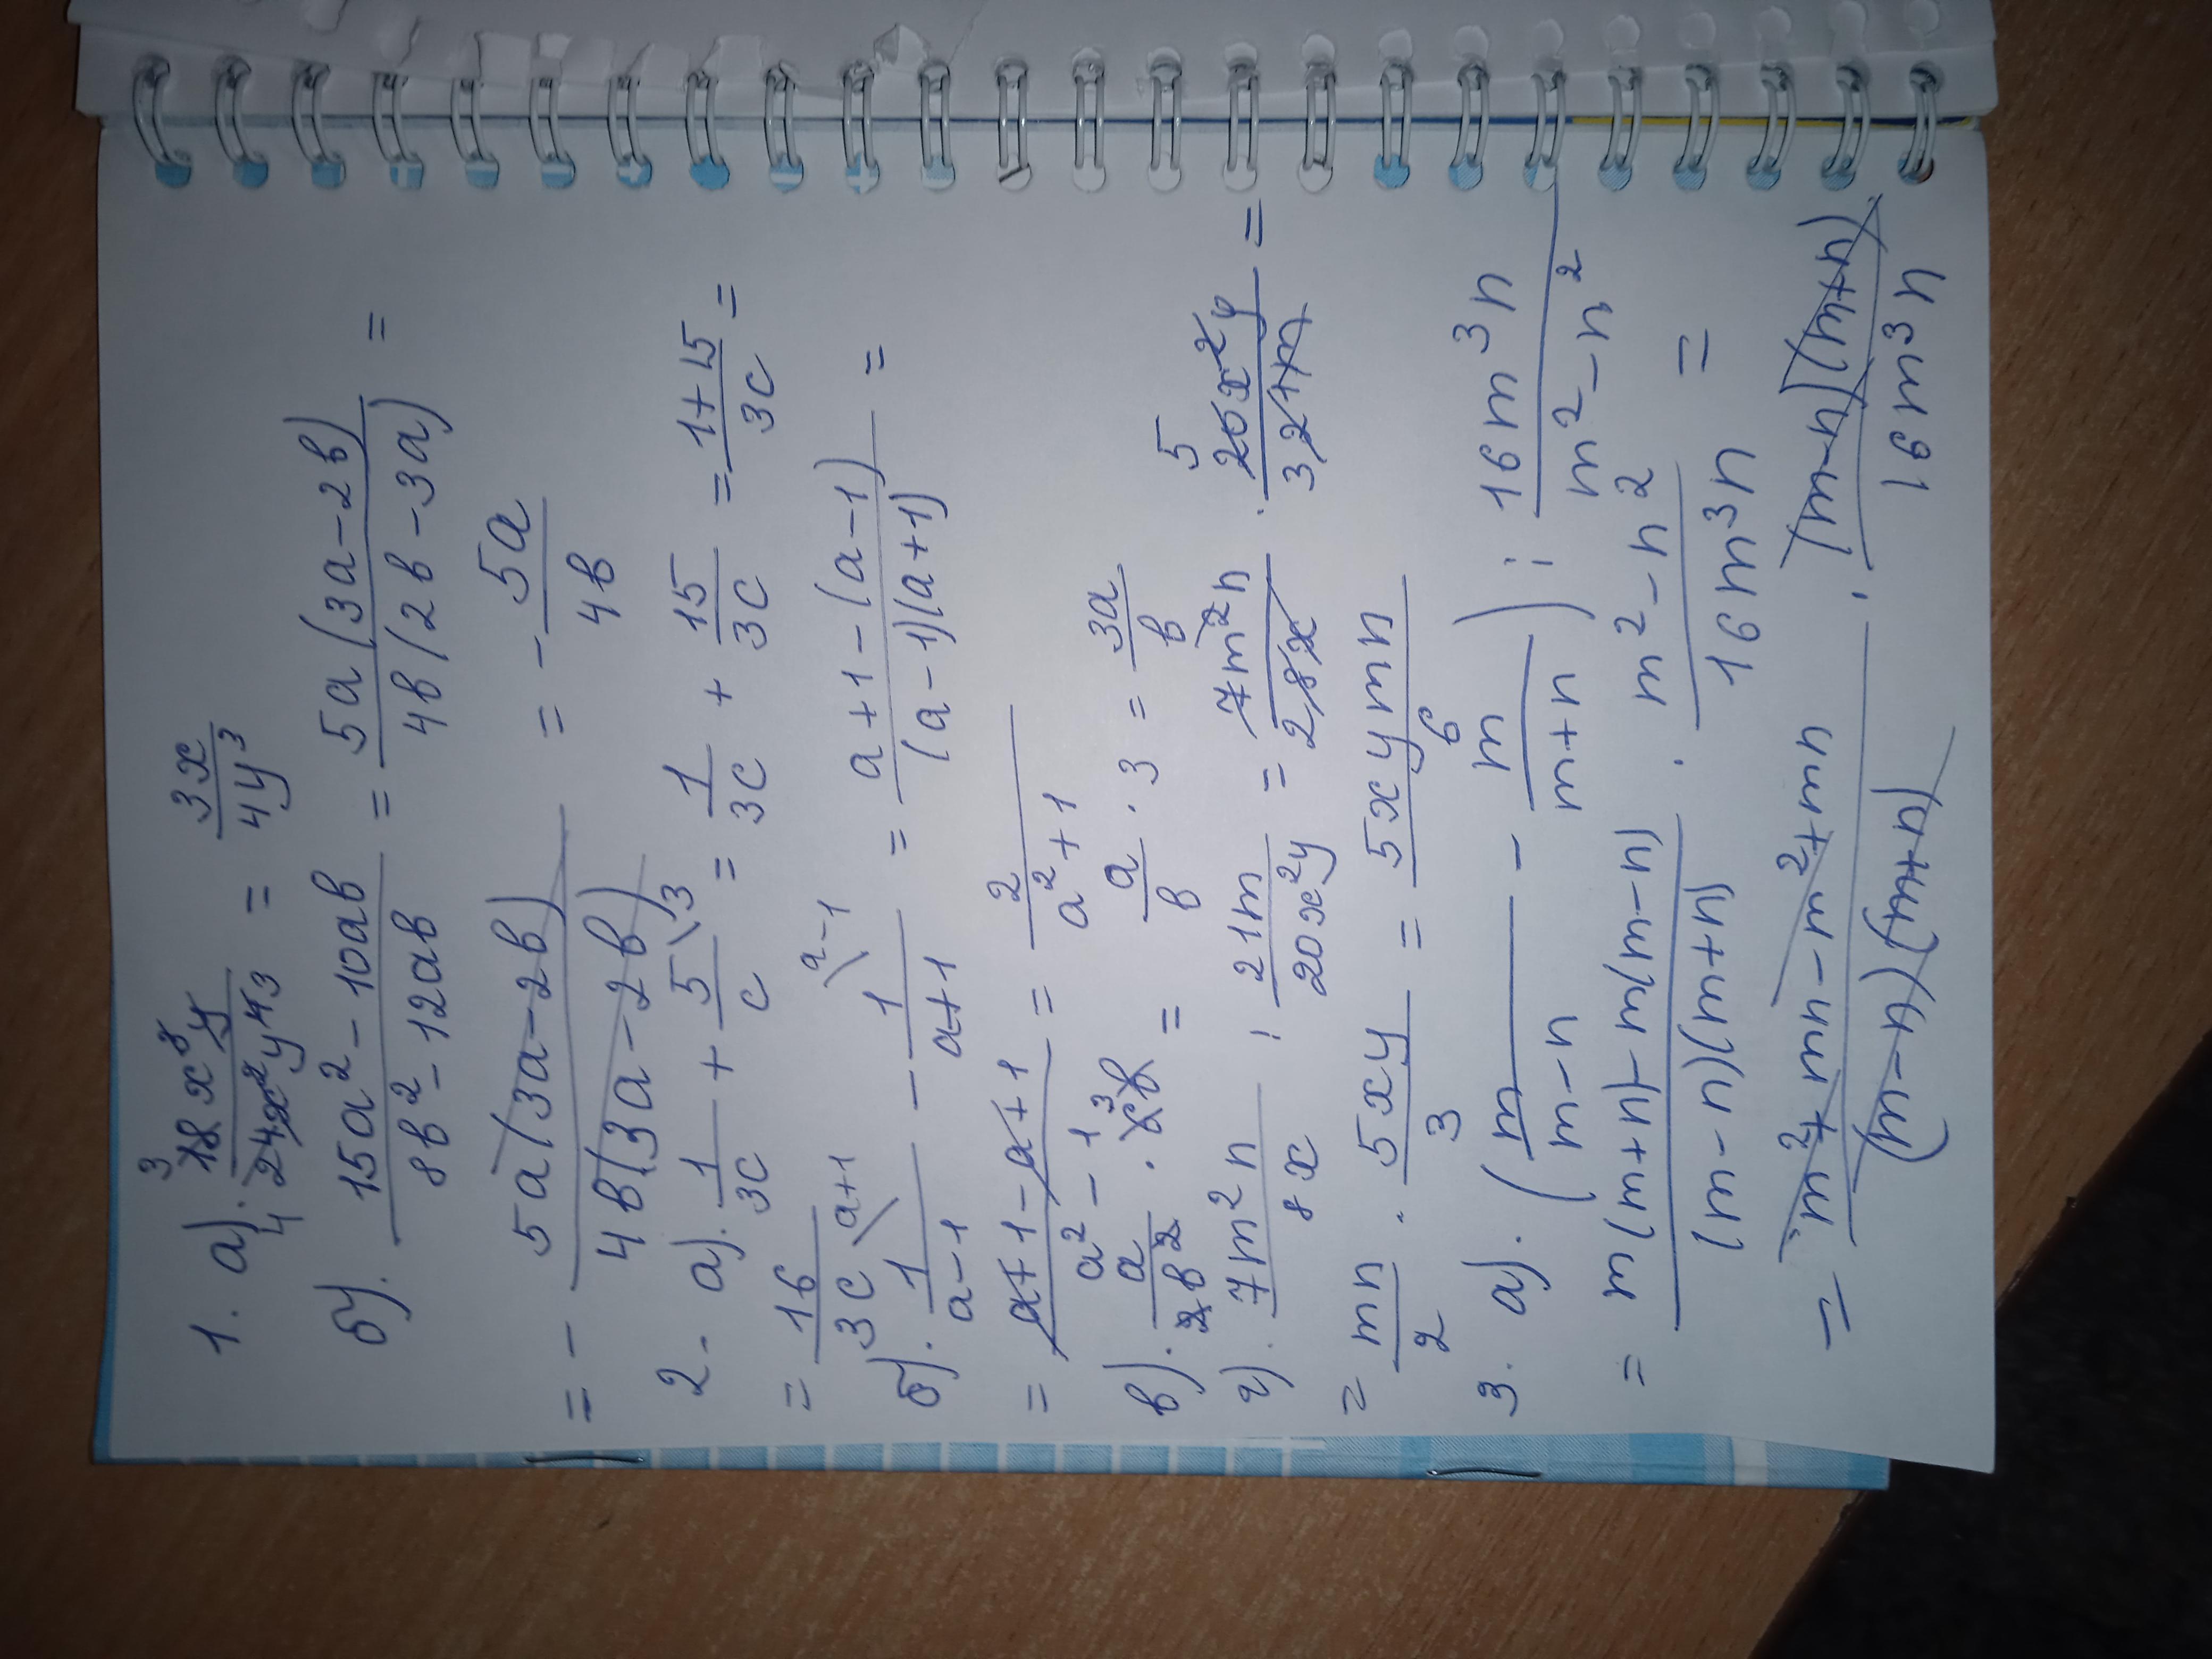 1. а). 18x³y / 24x²y⁴ = 3x / 4y³
б). 15a² - 10aв / 8в² - 12aв = 5a(3a - 2в) / 4в(2в - 3a) =
= - 5a(3a - 2в) / 4в(3a - 2в) = - 5a / 4в
2. а). 1 / 3c + 5 \3 / c = 1 / 3c + 15 / 3c = 1 + 15 / 3c =
= 16 / 3c
б). 1 \a+1 / a - 1 - 1 \a-1 / a + 1 = a + 1 - (a - 1) / (a - 1)(a + 1) =
= a + 1 - a + 1 / a² - 1 = 2 / a² + 1
в). a / 2в² · = a / в · 3 = 3a / в
г). 7m²n / 8x : 21m / 20x²y = 7m²n / 2 8x · 5 20x²y / 3 21m =
= mn / 2 · 5xy / 3 = 5xymn / 6
3. а). ( m / m - n - m / m + n ) : 16m³n / m² - n²
= m(m + n) - m(m - n) / (m - n)(m + n) · m² - n² / 16m³n =
= m² + mn - m² + mn / (m - n)(m + n) · (m - n)(m + n) / 16m³n